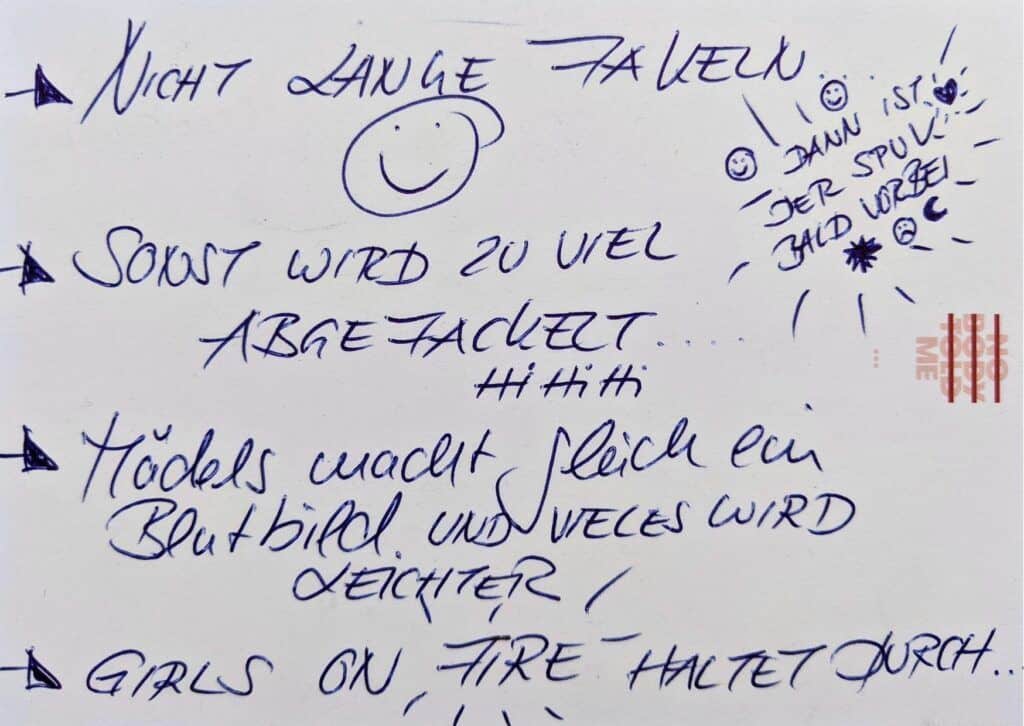 NICHT LANGE FAKELN....
DANN IST
DER SPUK
BALD VORBEI
SONST WIRD ZU VIEL
ABGEFACKELT.....
Hi Hi Hi
NO
BODY
TOLD
ME
...
Mädels macht gleich ein
Blutbild. UND VIELES WIRD
LEICHTER!
GIRLS ON FIRE - HALTET DURCH...